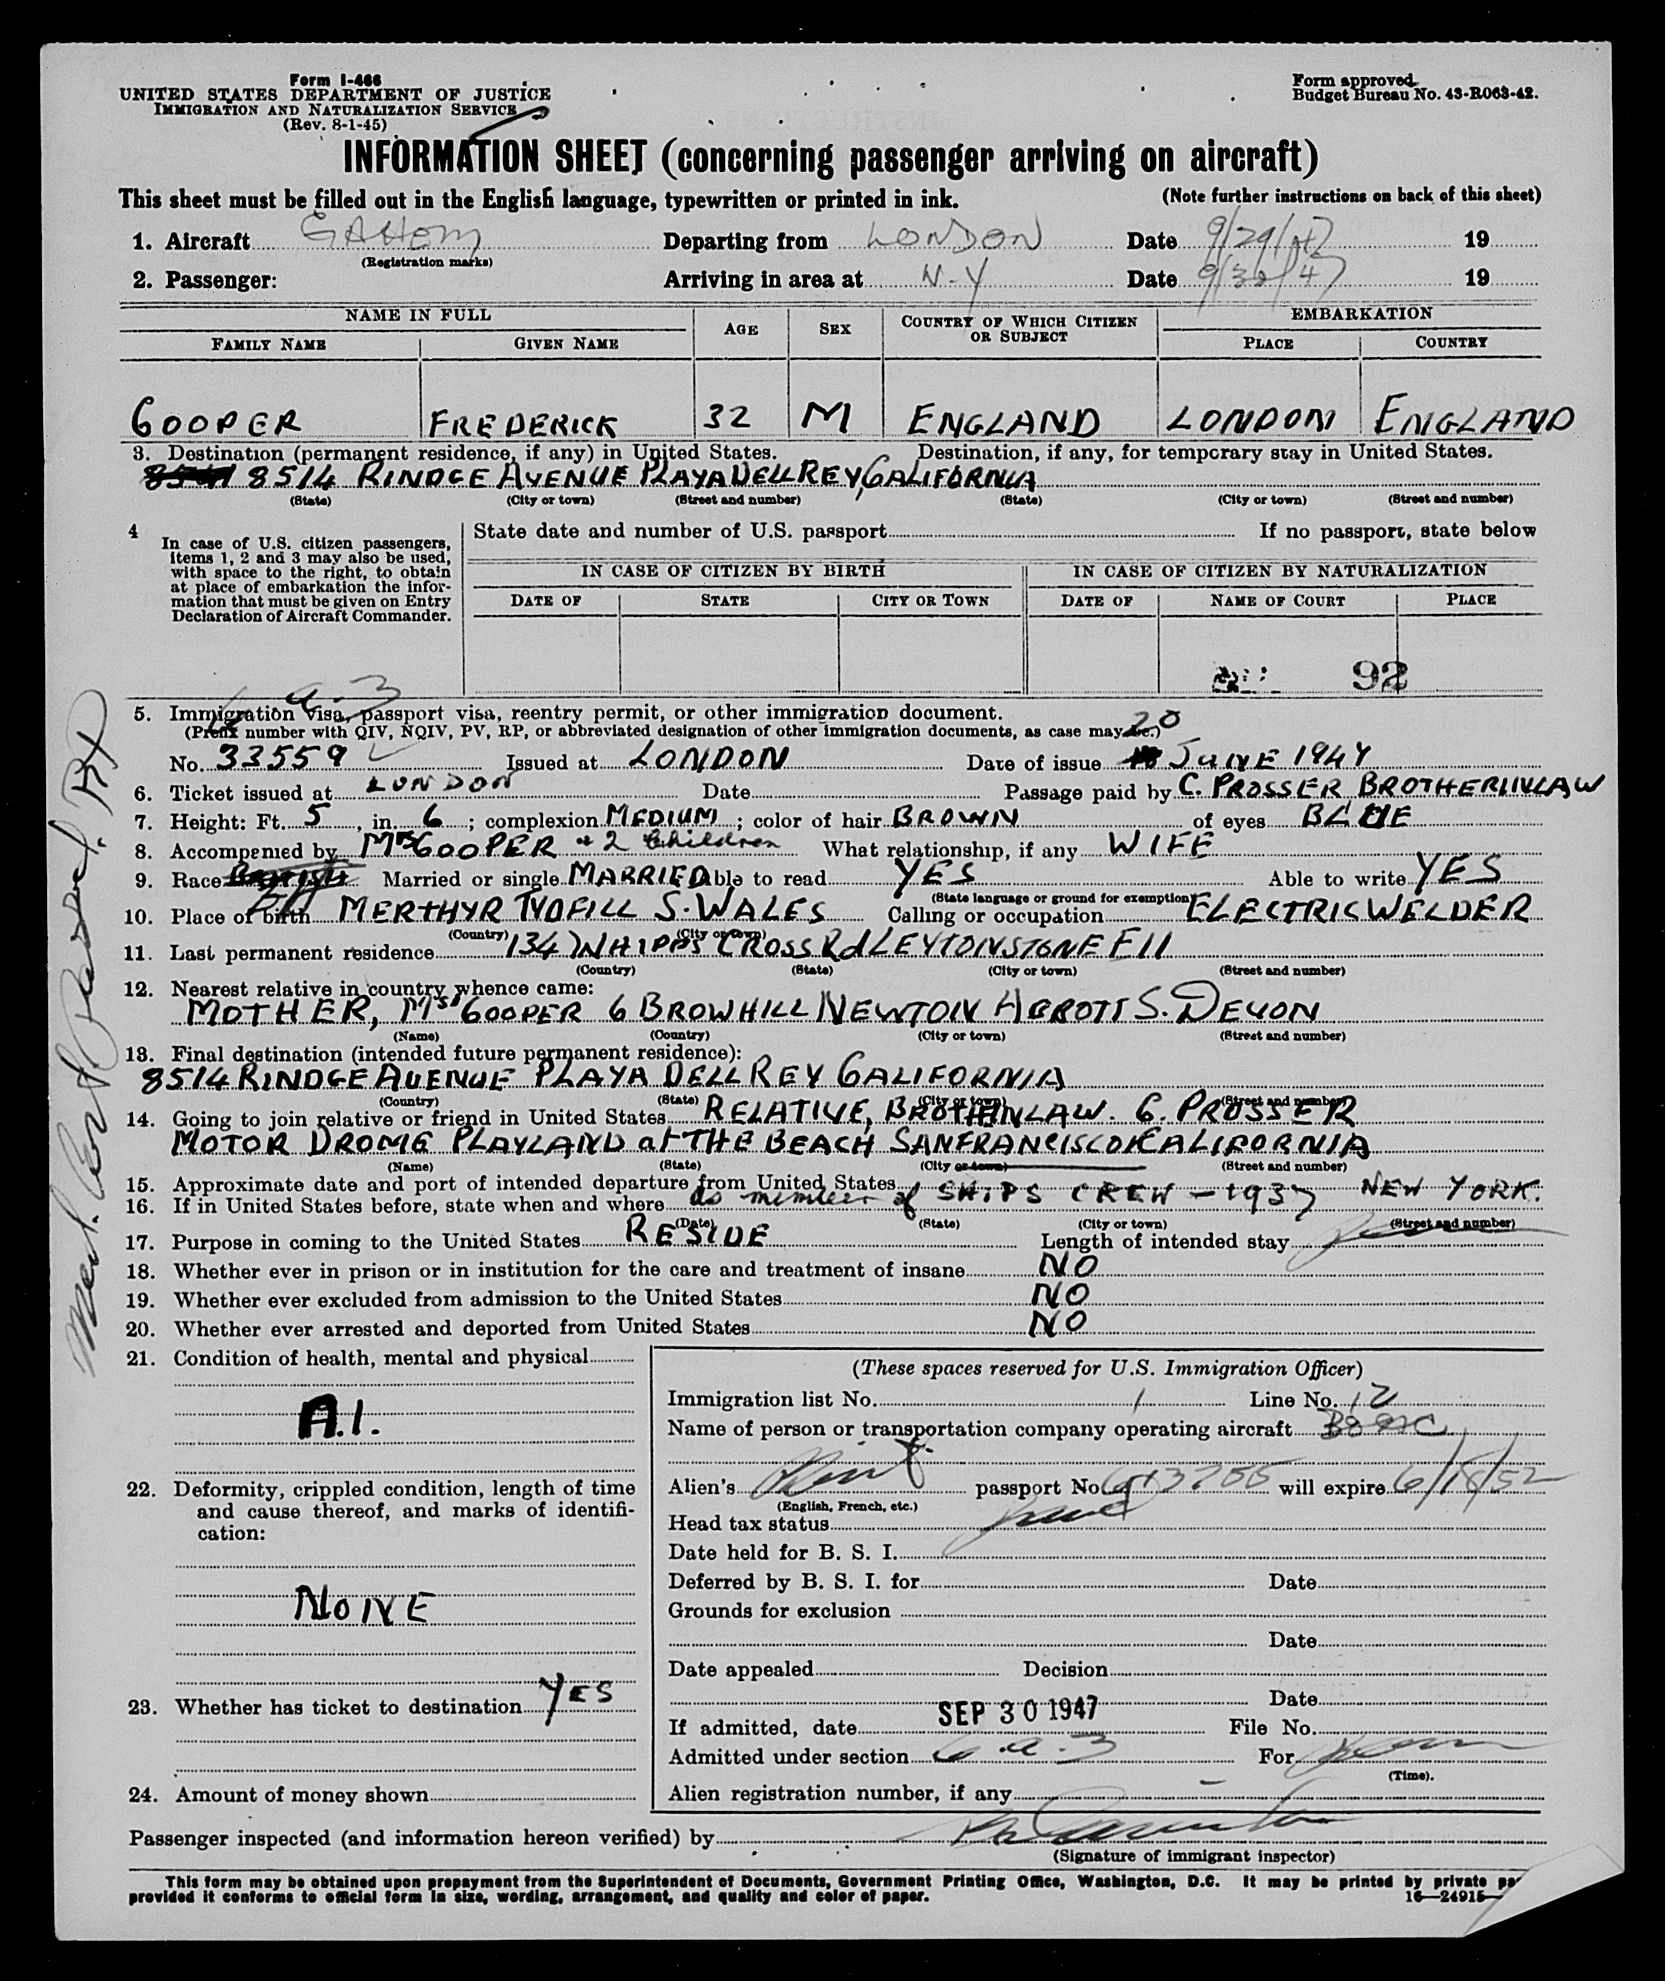 Form I-466
UNITED STATES DEPARTMENT OF JUSTICE
IMMIGRATION AND NATURALIZATION SERVICE
(Rev. 8-1-45)
Form approved.
Budget Bureau No. 43-R063-42.
INFORMATION SHEET (concerning passenger arriving on aircraft)
This sheet must be filled out in the English language, typewritten or printed in ink. (Note further instructions on back of this sheet)
1. Aircraft GAHEM Departing from LONDON Date 9/29/47 19
(Registration marks)
2. Passenger: Arriving in area at N-Y Date 9/30/47 19
NAME IN FULL AGE SEX COUNTRY OF WHICH CITIZEN OR SUBJECT EMBARKATION
FAMILY NAME GIVEN NAME PLACE COUNTRY
COOPER FREDERICK 32 M ENGLAND LONDON ENGLAND
3. Destination (permanent residence, if any) in United States. Destination, if any, for temporary stay in United States.
8514 RINDGE AVENUE PLAYA DELL REY, CALIFORNIA
(State) (City or town) (Street and number) (State) (City or town) (Street and number)
4 In case of U.S. citizen passengers, items 1, 2 and 3 may also be used, with space to the right, to obtain at place of embarkation the information that must be given on Entry Declaration of Aircraft Commander.
State date and number of U.S. passport If no passport, state below
IN CASE OF CITIZEN BY BIRTH IN CASE OF CITIZEN BY NATURALIZATION
DATE OF STATE CITY OR TOWN DATE OF NAME OF COURT PLACE
92
6 a-3
5. Immigration visa, passport visa, reentry permit, or other immigration document.
(Prefix number with QIV, NQIV, PV, RP, or abbreviated designation of other immigration documents, as case may be.)
No. 33559 Issued at LONDON Date of issue 20 JUNE 1947
6. Ticket issued at LONDON Date Passage paid by C. PROSSER BROTHERINLAW
7. Height: Ft. 5, in. 6; complexion MEDIUM; color of hair BROWN of eyes BLUE
8. Accompanied by MRS COOPER + 2 Children What relationship, if any WIFE
9. Race Married or single MARRIED Able to read YES Able to write YES
(State language or ground for exemption)
10. Place of birth MERTHYR TYDFILL S. WALES Calling or occupation ELECTRIC WELDER
(Country) (City or town)
11. Last permanent residence 134 WHIPPS CROSS Rd LEYTONSTONE E11
(Country) (State) (City or town) (Street and number)
12. Nearest relative in country whence came:
MOTHER, MRS COOPER 6 BROWHILL NEWTON ABBOTT S. DEVON
(Name) (Country) (City or town) (Street and number)
13. Final destination (intended future permanent residence):
8514 RINDGE AVENUE PLAYA DELL REY CALIFORNIA
(Country) (State) (City or town) (Street and number)
14. Going to join relative or friend in United States RELATIVE, BROTHERINLAW. C. PROSSER
MOTOR DROME PLAYLAND at THE BEACH SANFRANCISCO CALIFORNIA
(Name) (State) (City or town) (Street and number)
15. Approximate date and port of intended departure from United States
16. If in United States before, state when and where As member of SHIPS CREW - 1937 NEW YORK.
(Date) (State) (City or town) (Street and number)
17. Purpose in coming to the United States RESIDE Length of intended stay
18. Whether ever in prison or in institution for the care and treatment of insane NO
19. Whether ever excluded from admission to the United States NO
20. Whether ever arrested and deported from United States NO
21. Condition of health, mental and physical
A.1.
22. Deformity, crippled condition, length of time and cause thereof, and marks of identification:
NONE
23. Whether has ticket to destination YES
24. Amount of money shown
(These spaces reserved for U.S. Immigration Officer)
Immigration list No. 1 Line No. 12
Name of person or transportation company operating aircraft BOAC
Alien's passport No. will expire 6/18/52
(English, French, etc.)
Head tax status
Date held for B. S. I.
Deferred by B. S. I. for Date
Grounds for exclusion
Date
Date appealed Decision
Date
If admitted, date SEP 30 1947 File No.
Admitted under section 6 a-3 For
(Time).
Alien registration number, if any
Passenger inspected (and information hereon verified) by
(Signature of immigrant inspector)
This form may be obtained upon prepayment from the Superintendent of Documents, Government Printing Office, Washington, D.C. It may be printed by private
provided it conforms to official form in size, wording, arrangement, and quality and color of paper.
16—24915—